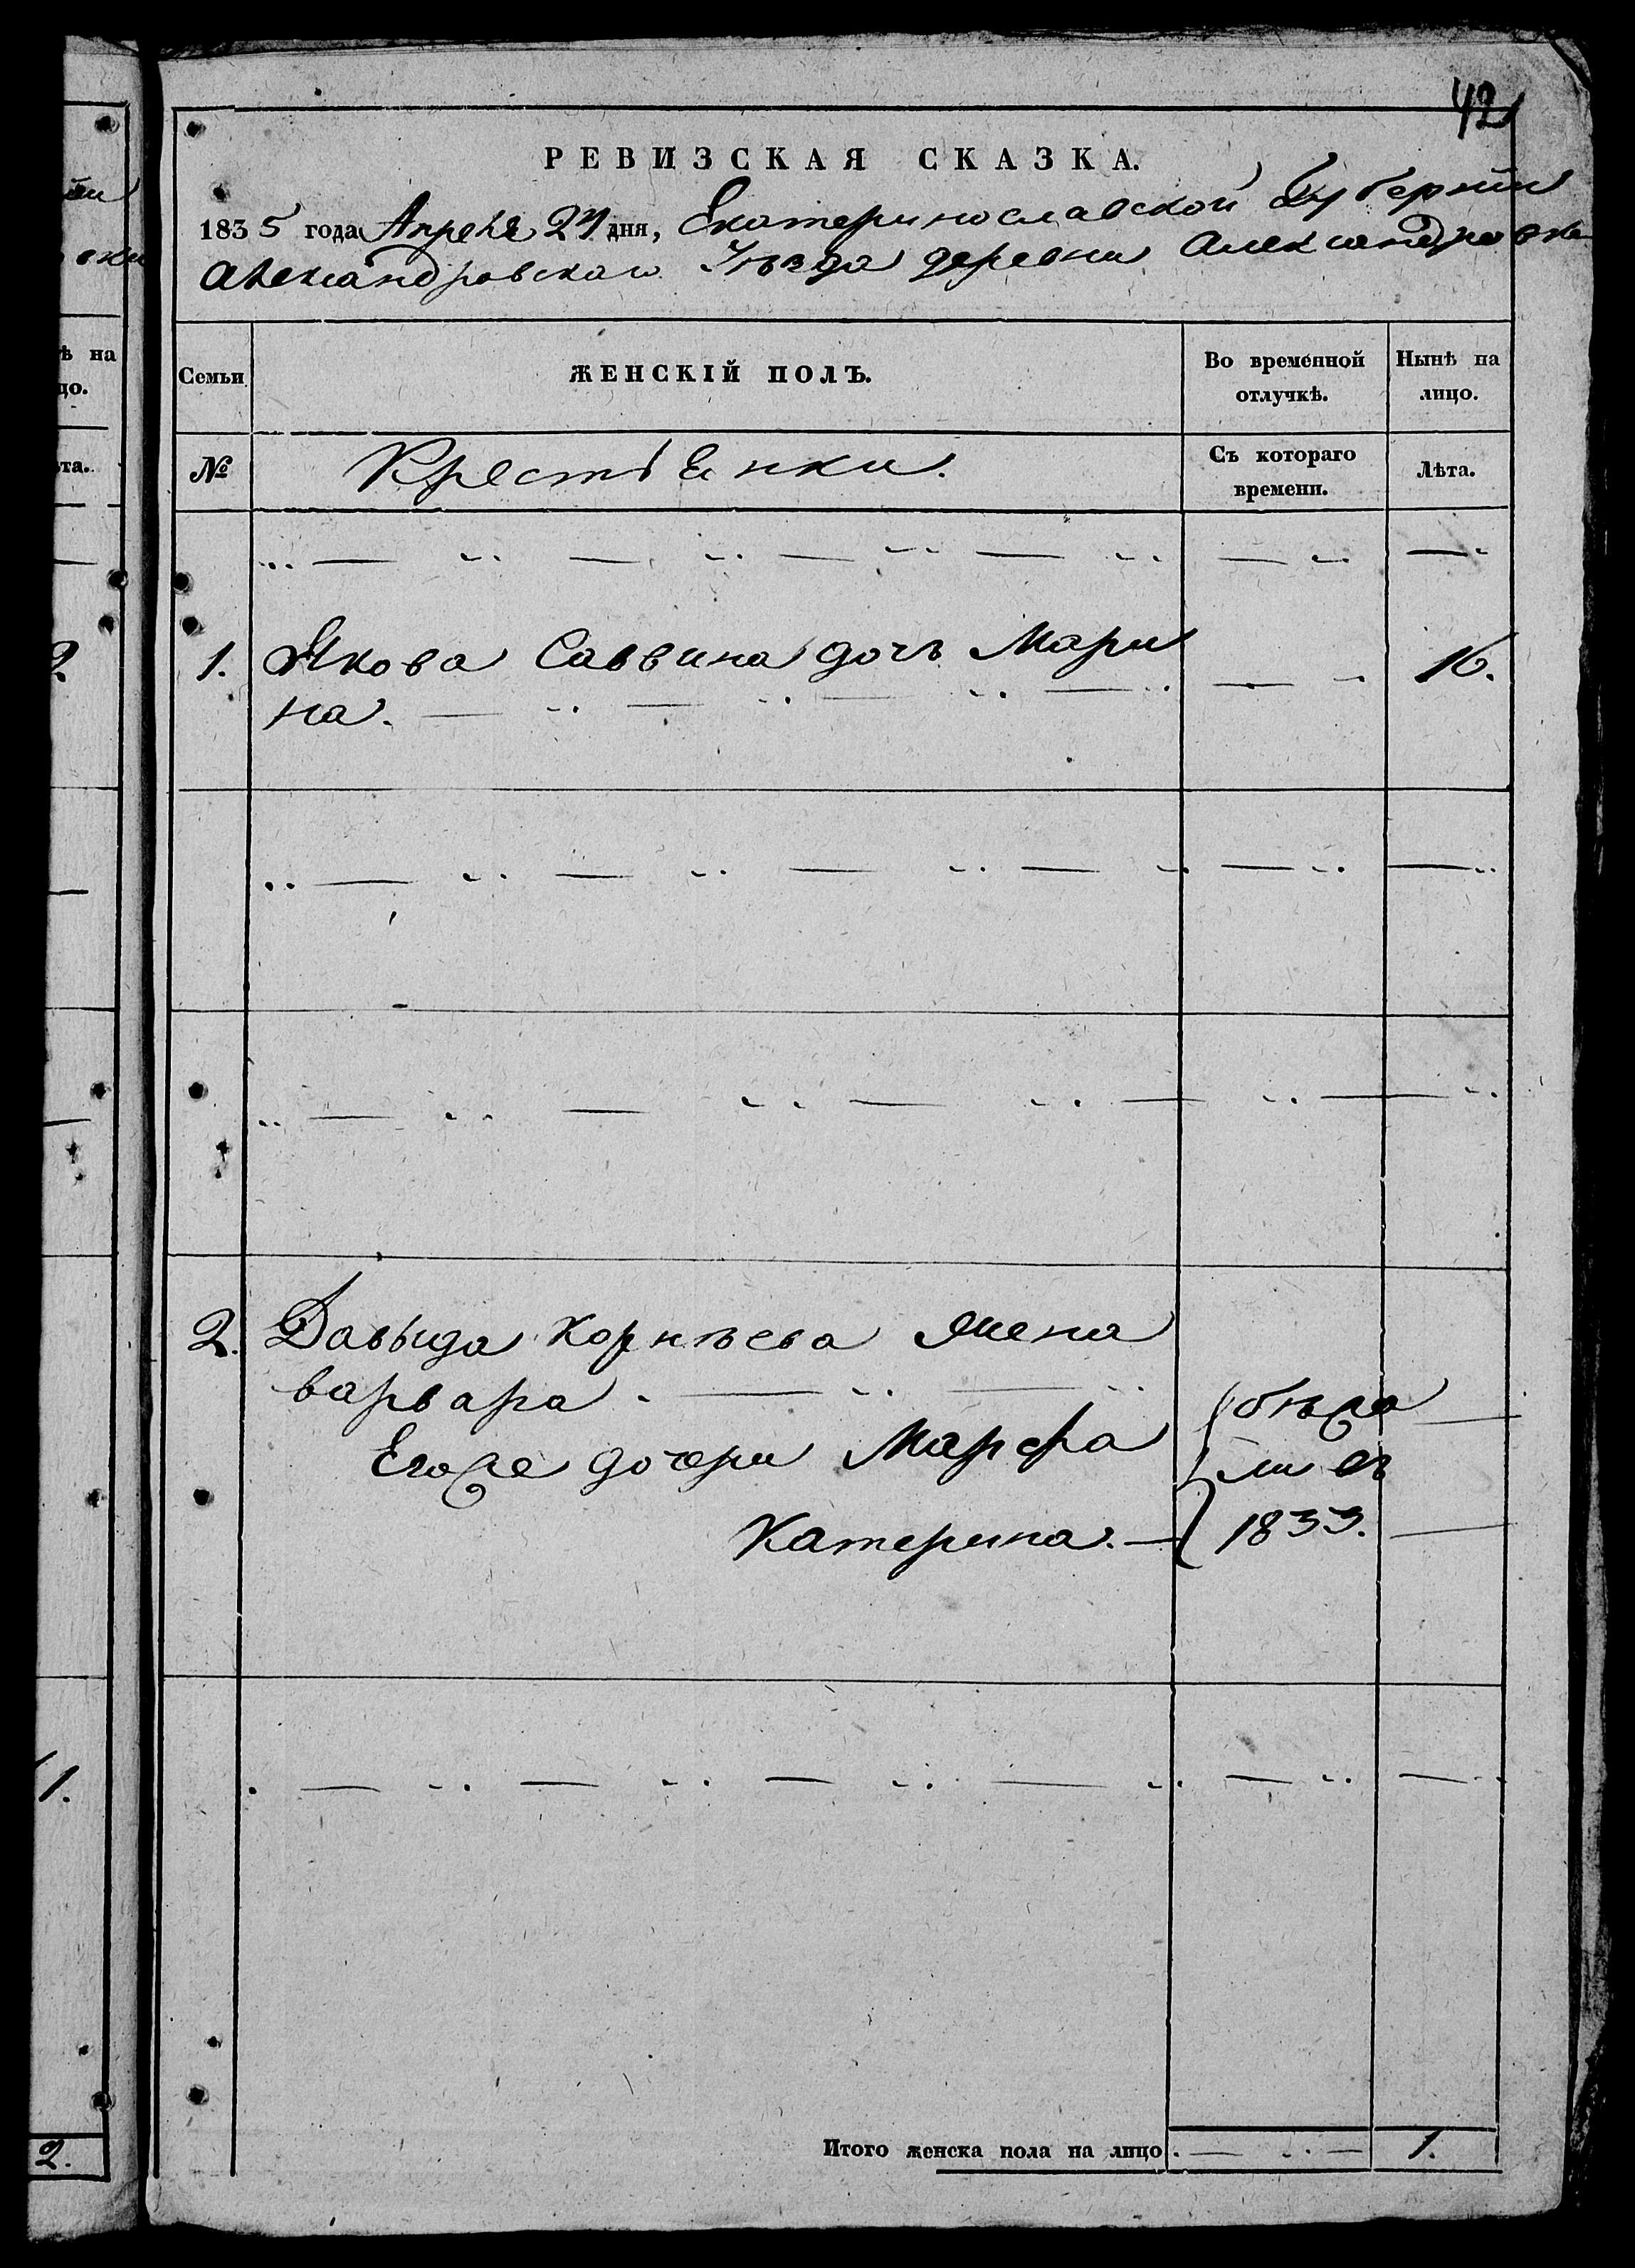 42
РЕВИЗСКАЯ СКАЗКА.
1835 года Апреля 27 дня, Екатеринославской Губернии
Александровскаго Уѣзда деревни Александровки
Семьи
ЖЕНСКІЙ ПОЛЪ.
Во временной отлучкѣ.
Нынѣ на лицо.
№
Крестьянки.
Съ котораго времени.
Лѣта.
1. Якова Саввина дочь Мари 16.
на.
2. Давыда Корнѣева жена
варвара. бѣжа
Егоже дочери Марфа ли въ
Катерина. 1833.
Итого женска пола на лицо 1.
ѣ на
цо.
та.
2.
1.
2.